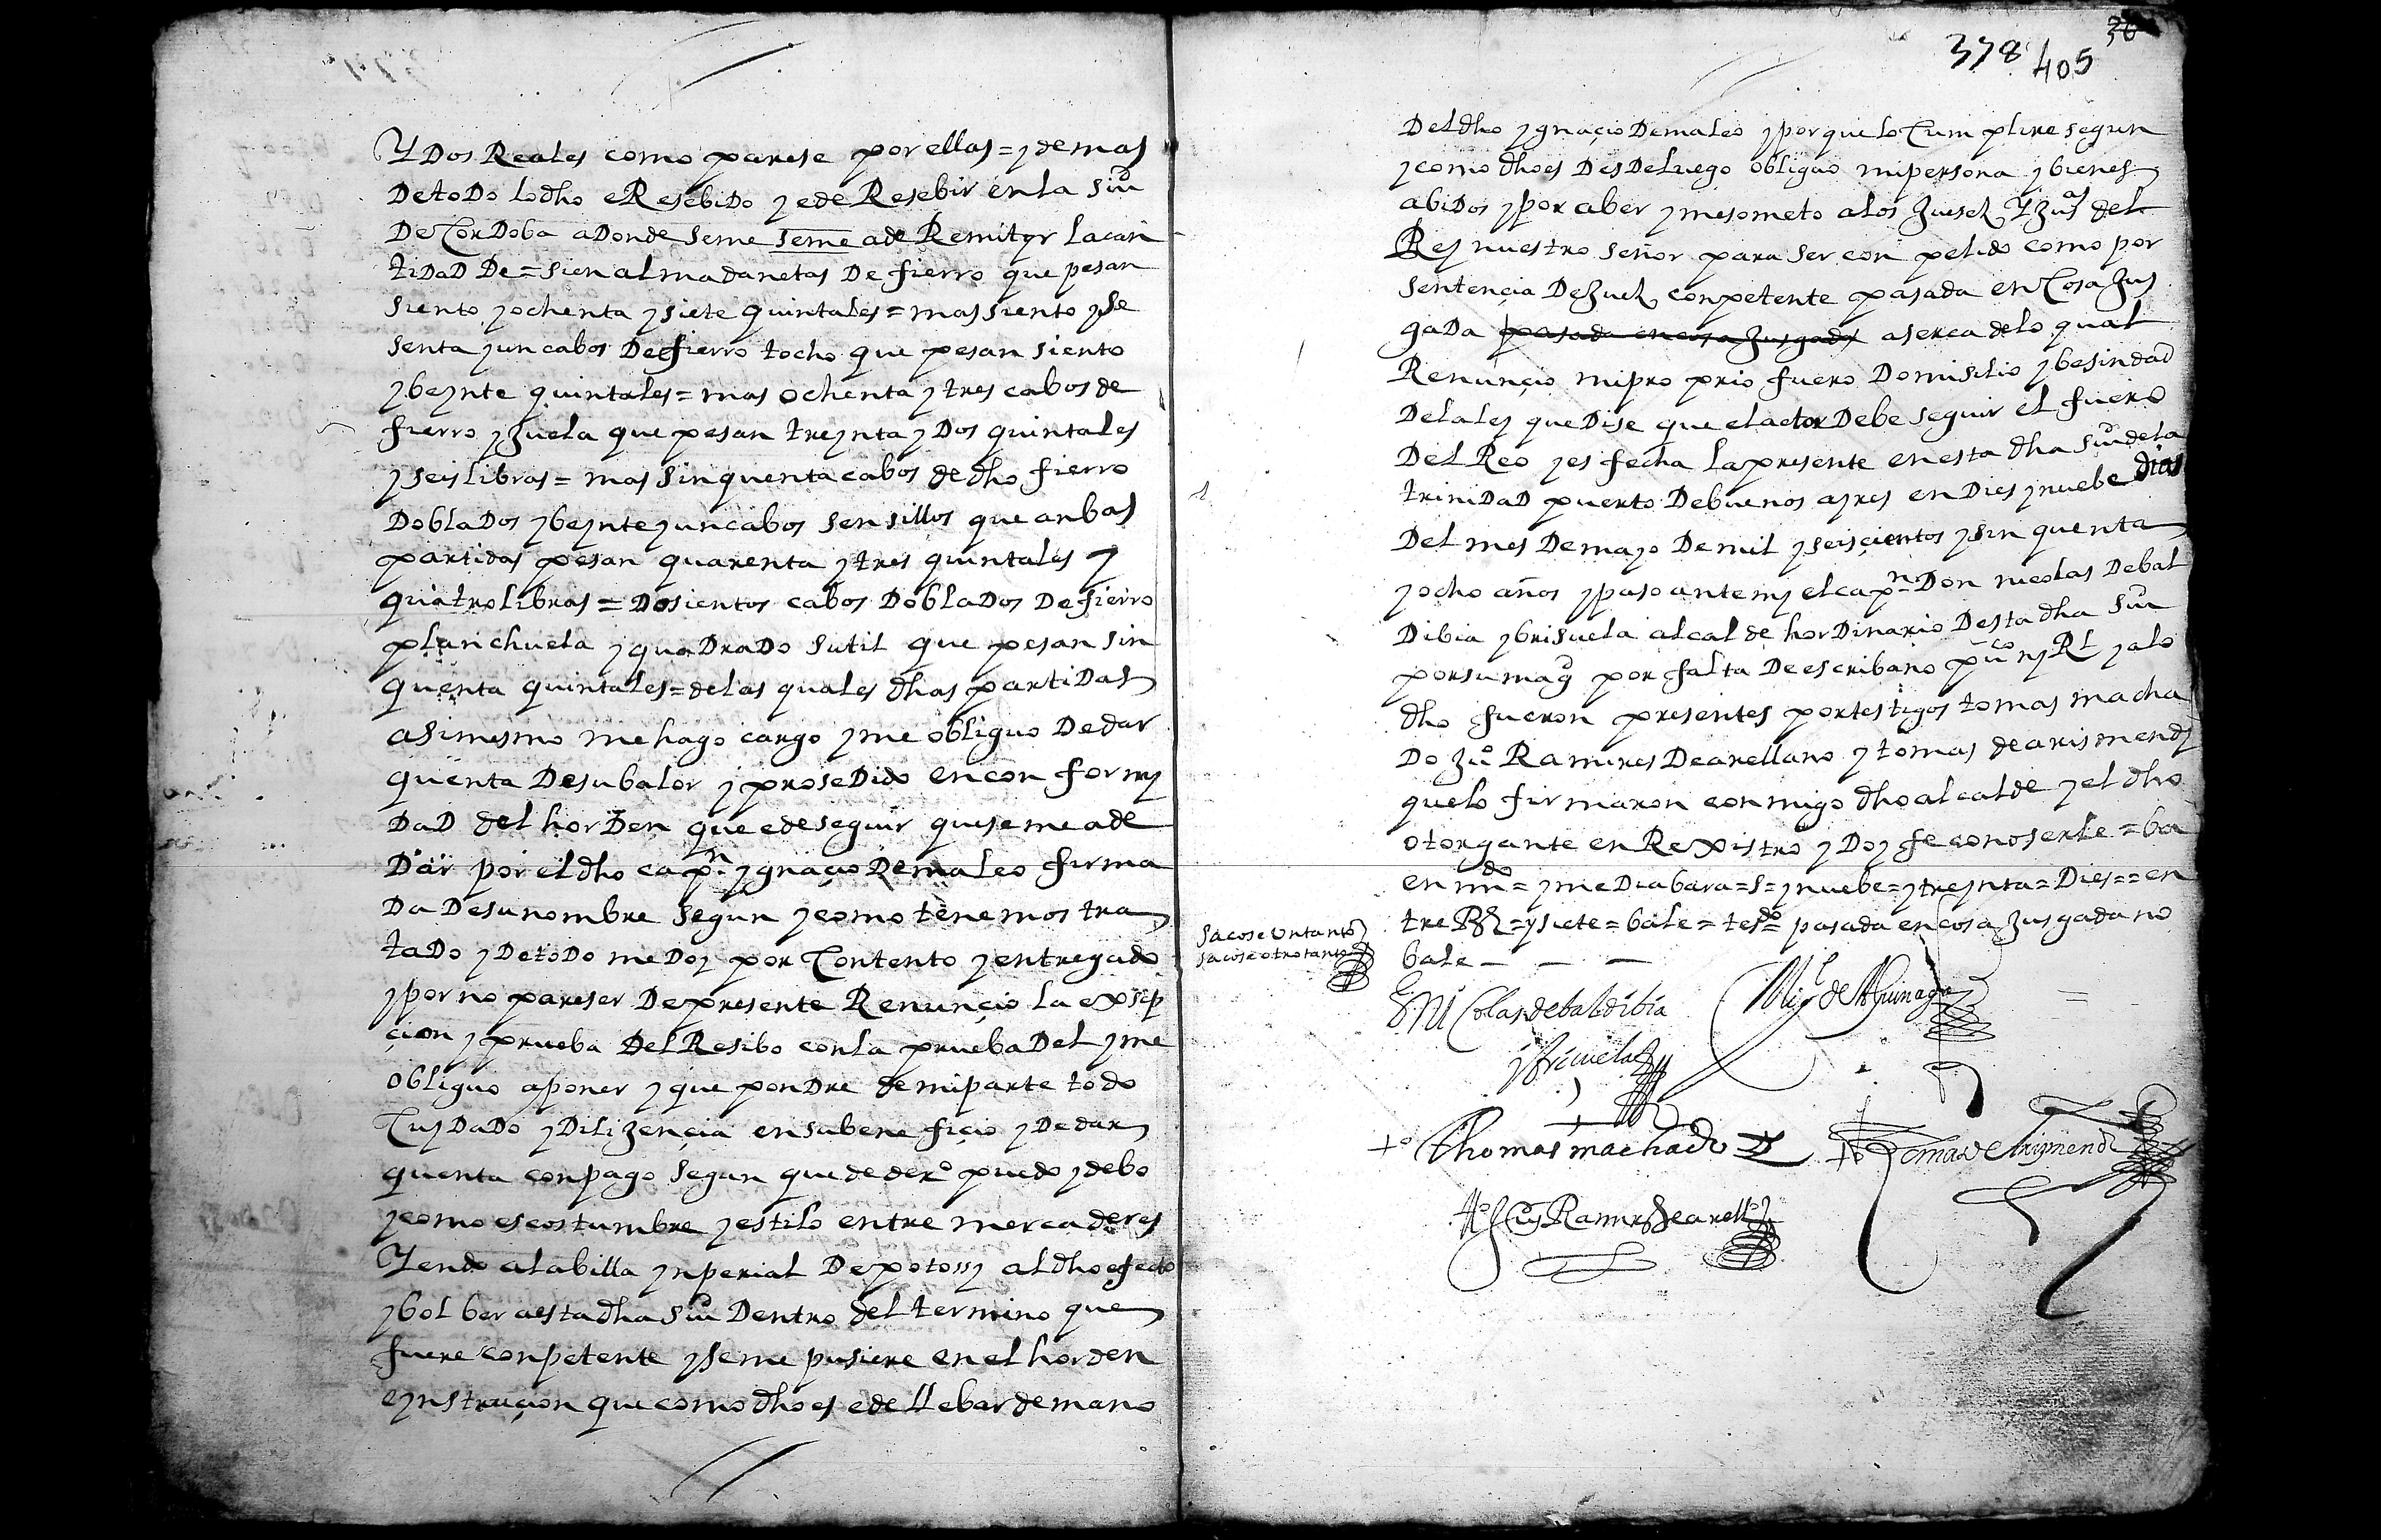 Y Dos Reales como parese por ellas = y demas
De todo lo dho e Resebido y e de Resebir en la siu
De Cordoba a Donde seme seme a de Remityr la can
tidad De = sien almadanetas De fierro que pesan
siento y ochenta y siete quintales = mas siento y se
senta y un cabos De fierro tocho que pesan siento
y beynte quintales = mas ochenta y tres cabos de
fierro yzuela que pesan treynta y Dos quintales
y seis libras = mas sinquenta cabos de dho fierro
Doblados y beynte y un cabos sensillos que anbas
partidas pesan quarenta y tres quintales y
quatro libras = Dosientos cabos Doblados De fierro
planchuela y quadrado sutil que pesan sin
quenta quintales = de las quales dhas partidas
asimesmo me hago cargo y me obliguo De dar
quenta De su balor y prosedido en conformy
dad del horden que e de seguir que se me a de
Dar por el dho capn ygnaçio De maleo firma
Da De su nombre segun y como tenemos tra
tado y De todo me Doy por Contento y entregado
y por no pareser De presente Renunçio la exsep
çion y prueba Del Resibo con la prueba Del y me
obliguo a poner y que pondre de mi parte todo
Cuydado y Dilizençia en su benefiçio y De dar
quenta con pago segun que de dero puedo y debo
y como es costumbre y estilo entre mercaderes
Yendo a la billa ynperial De potossy al dho efecto
y bolber a esta dha siu Dentro del termino que
fuere conpetente y se me pusiere en el horden
e ynstruçion que como dho es e de llebar de mano
378 405
Del dho ygnaçio De maleo y por que lo Cumplire segun
y como dho es Desde luego obliguo mi persona y bienes
abidos y por aber y me someto a los Juesez Y Jusas del
Rey nuestro señor para ser conpelido como por
sentençia De Juez conpetente pasada en Cosa Jus
gada pasada en cosa Jusgada aserca de lo qual
Renunçio mi proprio fuero Domisilio y besindad
De la ley que Dise que el actor Debe seguir el fuero
Del Reo y es fecha la presente en esta dha siu de la
trinidad puerto De buenos ayres en Dies y nuebe dias
Del mes De mayo De mil y seisçientos y sinquenta
y ocho años y paso ante my el capn Don nicolas Debal
Dibia y brisuela alcalde hordinario Desta dha siu
por su magd por falta De escribano puco ny Rl y a lo
dho fueron presentes por testigos tomas macha
Do Juo Ramires De arellano y tomas de arismendy
que lo firmaron conmigo dho alcalde y el dho
otorgante en Rexistro y Doy fe conoserle = ba
en mdo = y media bara = s = y nuebe = y treynta = Dies = = en
tre Rs = y siete = bale = tesdo = pasada en cosa Jusgada no
bale —
sacose un tanto
sacose otro tanto
D. Nicolas de baldibia
y brisuela
Migl de
to Thomas machado
to Tomas de Arizmendi
to Juo Ramirs de arello